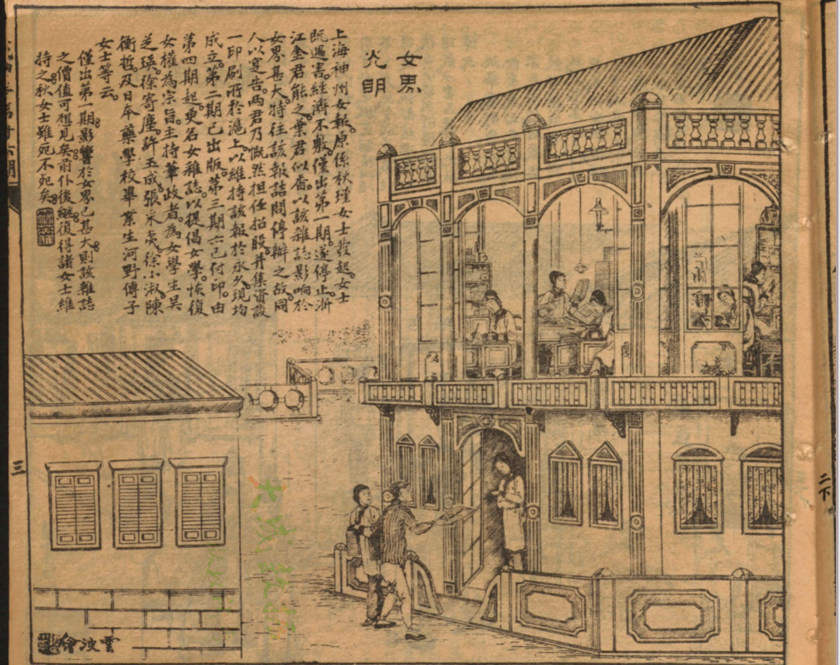 女界
光明
上海神州女報原係秋瑾女士發起女士
既遇害經濟不敷僅出第一期遂停止浙
江金君能之葉君似香以該雜誌影响於
女界甚大特往該報詰問停辦之故同
人以寔告兩君乃慨然担任招股并集資設
一印刷所於滬上以維持該報於永久現均
成立第二期已出版第三期亦已付印由
第四期起更名女雜誌以提倡女學恢復
女權為宗旨主持筆政者為女學生吳
芝瑛徐寄塵許玉成張采徐小淑陳
衡哲及日本藥學校畢業生河野傳子
女士等云
僅出第一期影響於女界已甚大則該雜誌
之價值可想見矣前仆後繼復得諸女士維
持之秋女士雖死不死矣
雲波繪
三